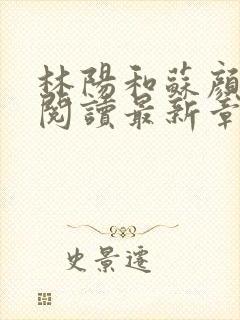 林陽和蘇顏
閱讀最新章
史景遷